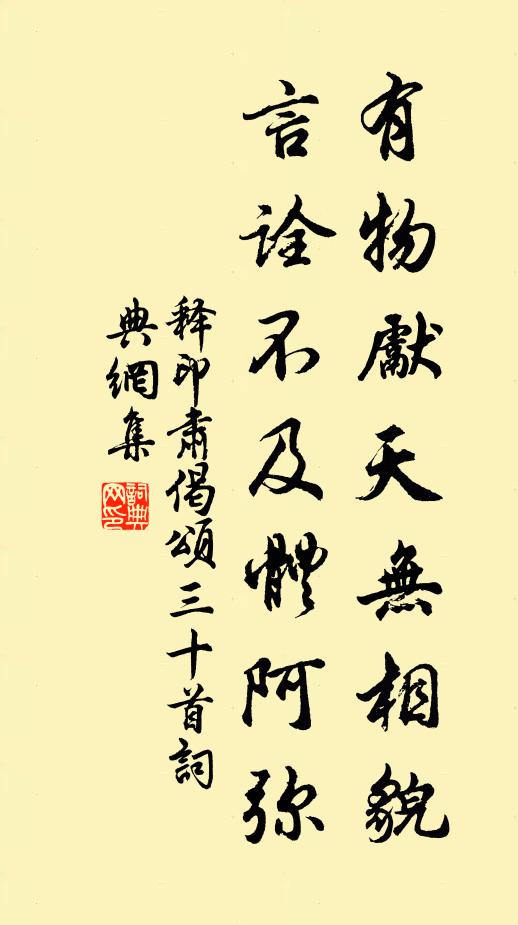 有物獻天無相貌
言詮不及體阿弥
释印肃偈颂三十首詞
典網集
詞典
网印